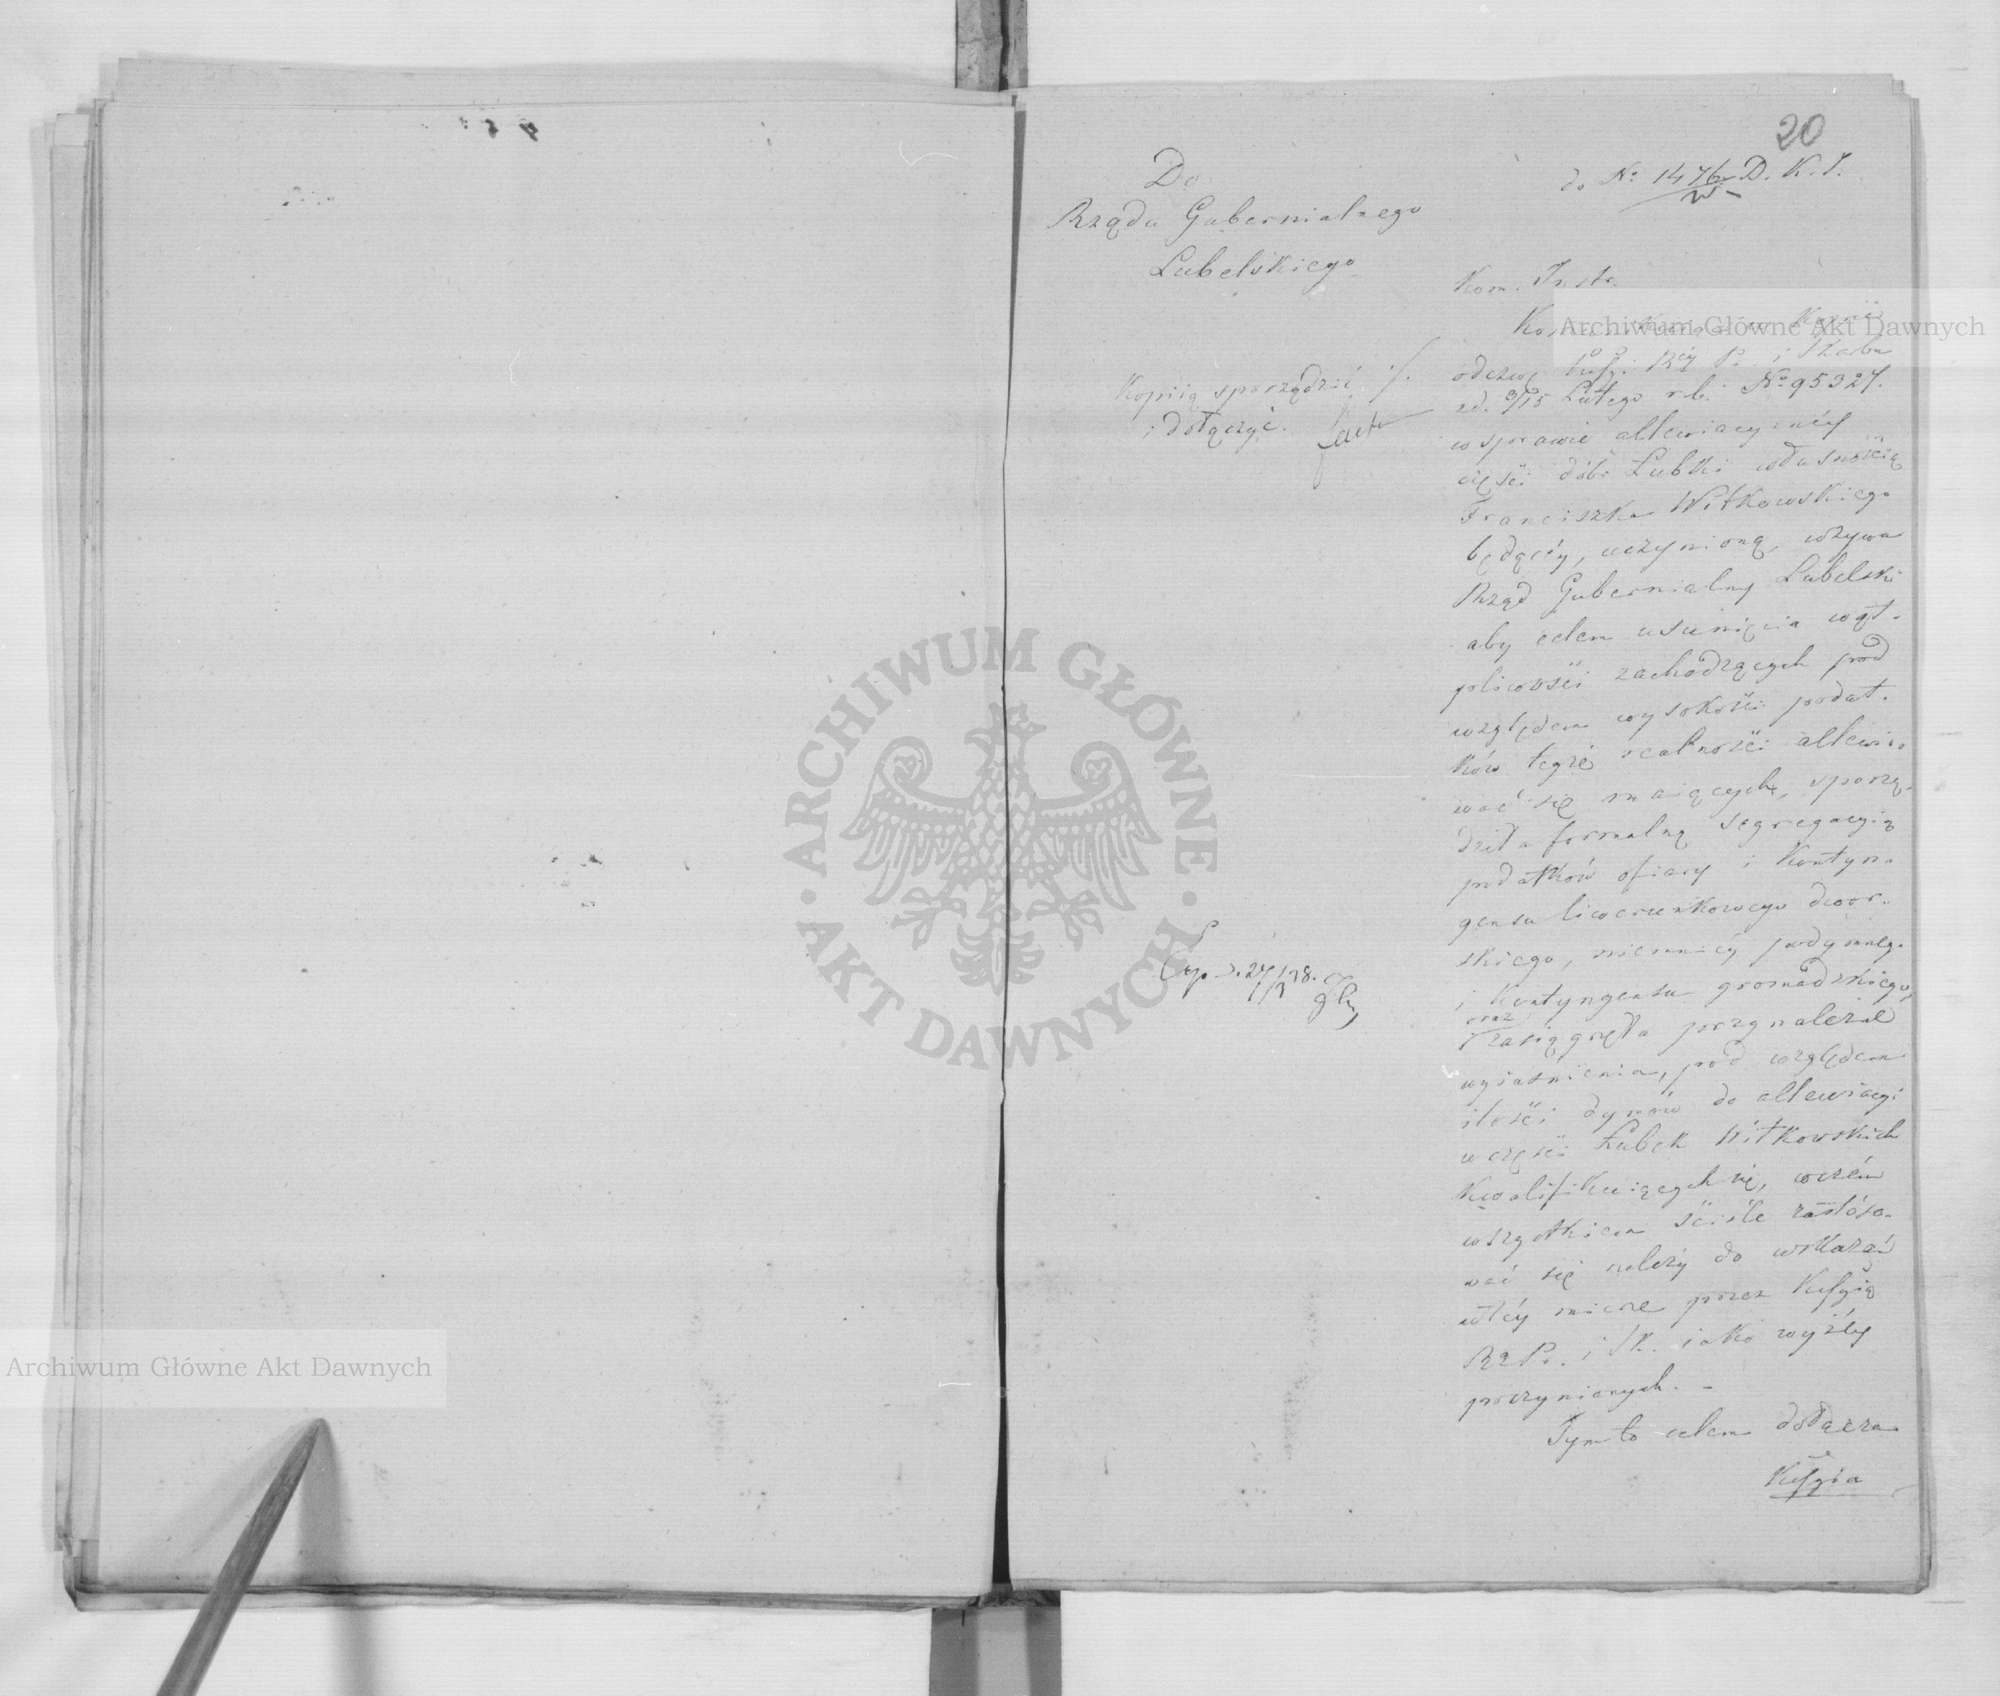 20
do N: 1476 D. K. I.
w
Do
Rządu Gubernialnego
Lubelskiego
Kopiią sporządzić ./.
i dołączyć.
Kom. Instr.
w Kopii
odezwę i Skarbu
od. 3/15 Lutego r.b. No 95327.
w sprawie allewiacyinéy
części dóbr Łubki własnością
Franciszka Witkowskiego
będącéy, uczynioną, wzywa
Rząd Gubernialny Lubelski
aby celem usunięcia wąt-
pliwości zachodzących pod
względem wysokości podat-
ków tegoż realności allewio-
wać się maiących, sporzą-
dził a formalną segregacyią
podatków ofiary i Kontyn-
gensu liwerunkowego dwor-
skiego, niemniéy podymneg.
i Kontyngensu gromadzkiego,
oraz
zasiągnęła przynależne
wyiaśnienia, pod względem
ilości dymów do allewiacyi
w części Łubek Witkowskich
Kwalifikuiących się, wczém
wszystkiem ściśle zastóso-
wać się należy do wskazań
wtéy mierze przez Kmssyią
R. P. i Sk. iako wyżéy
poczynionych. -
Tym to celem dołącza
Kmssyia
Exp. d. 27/1 38.
ARCHIWUM GŁÓWNE
AKT DAWNYCH
Archiwum Główne Akt Dawnych
Archiwum Główne Akt Dawnych